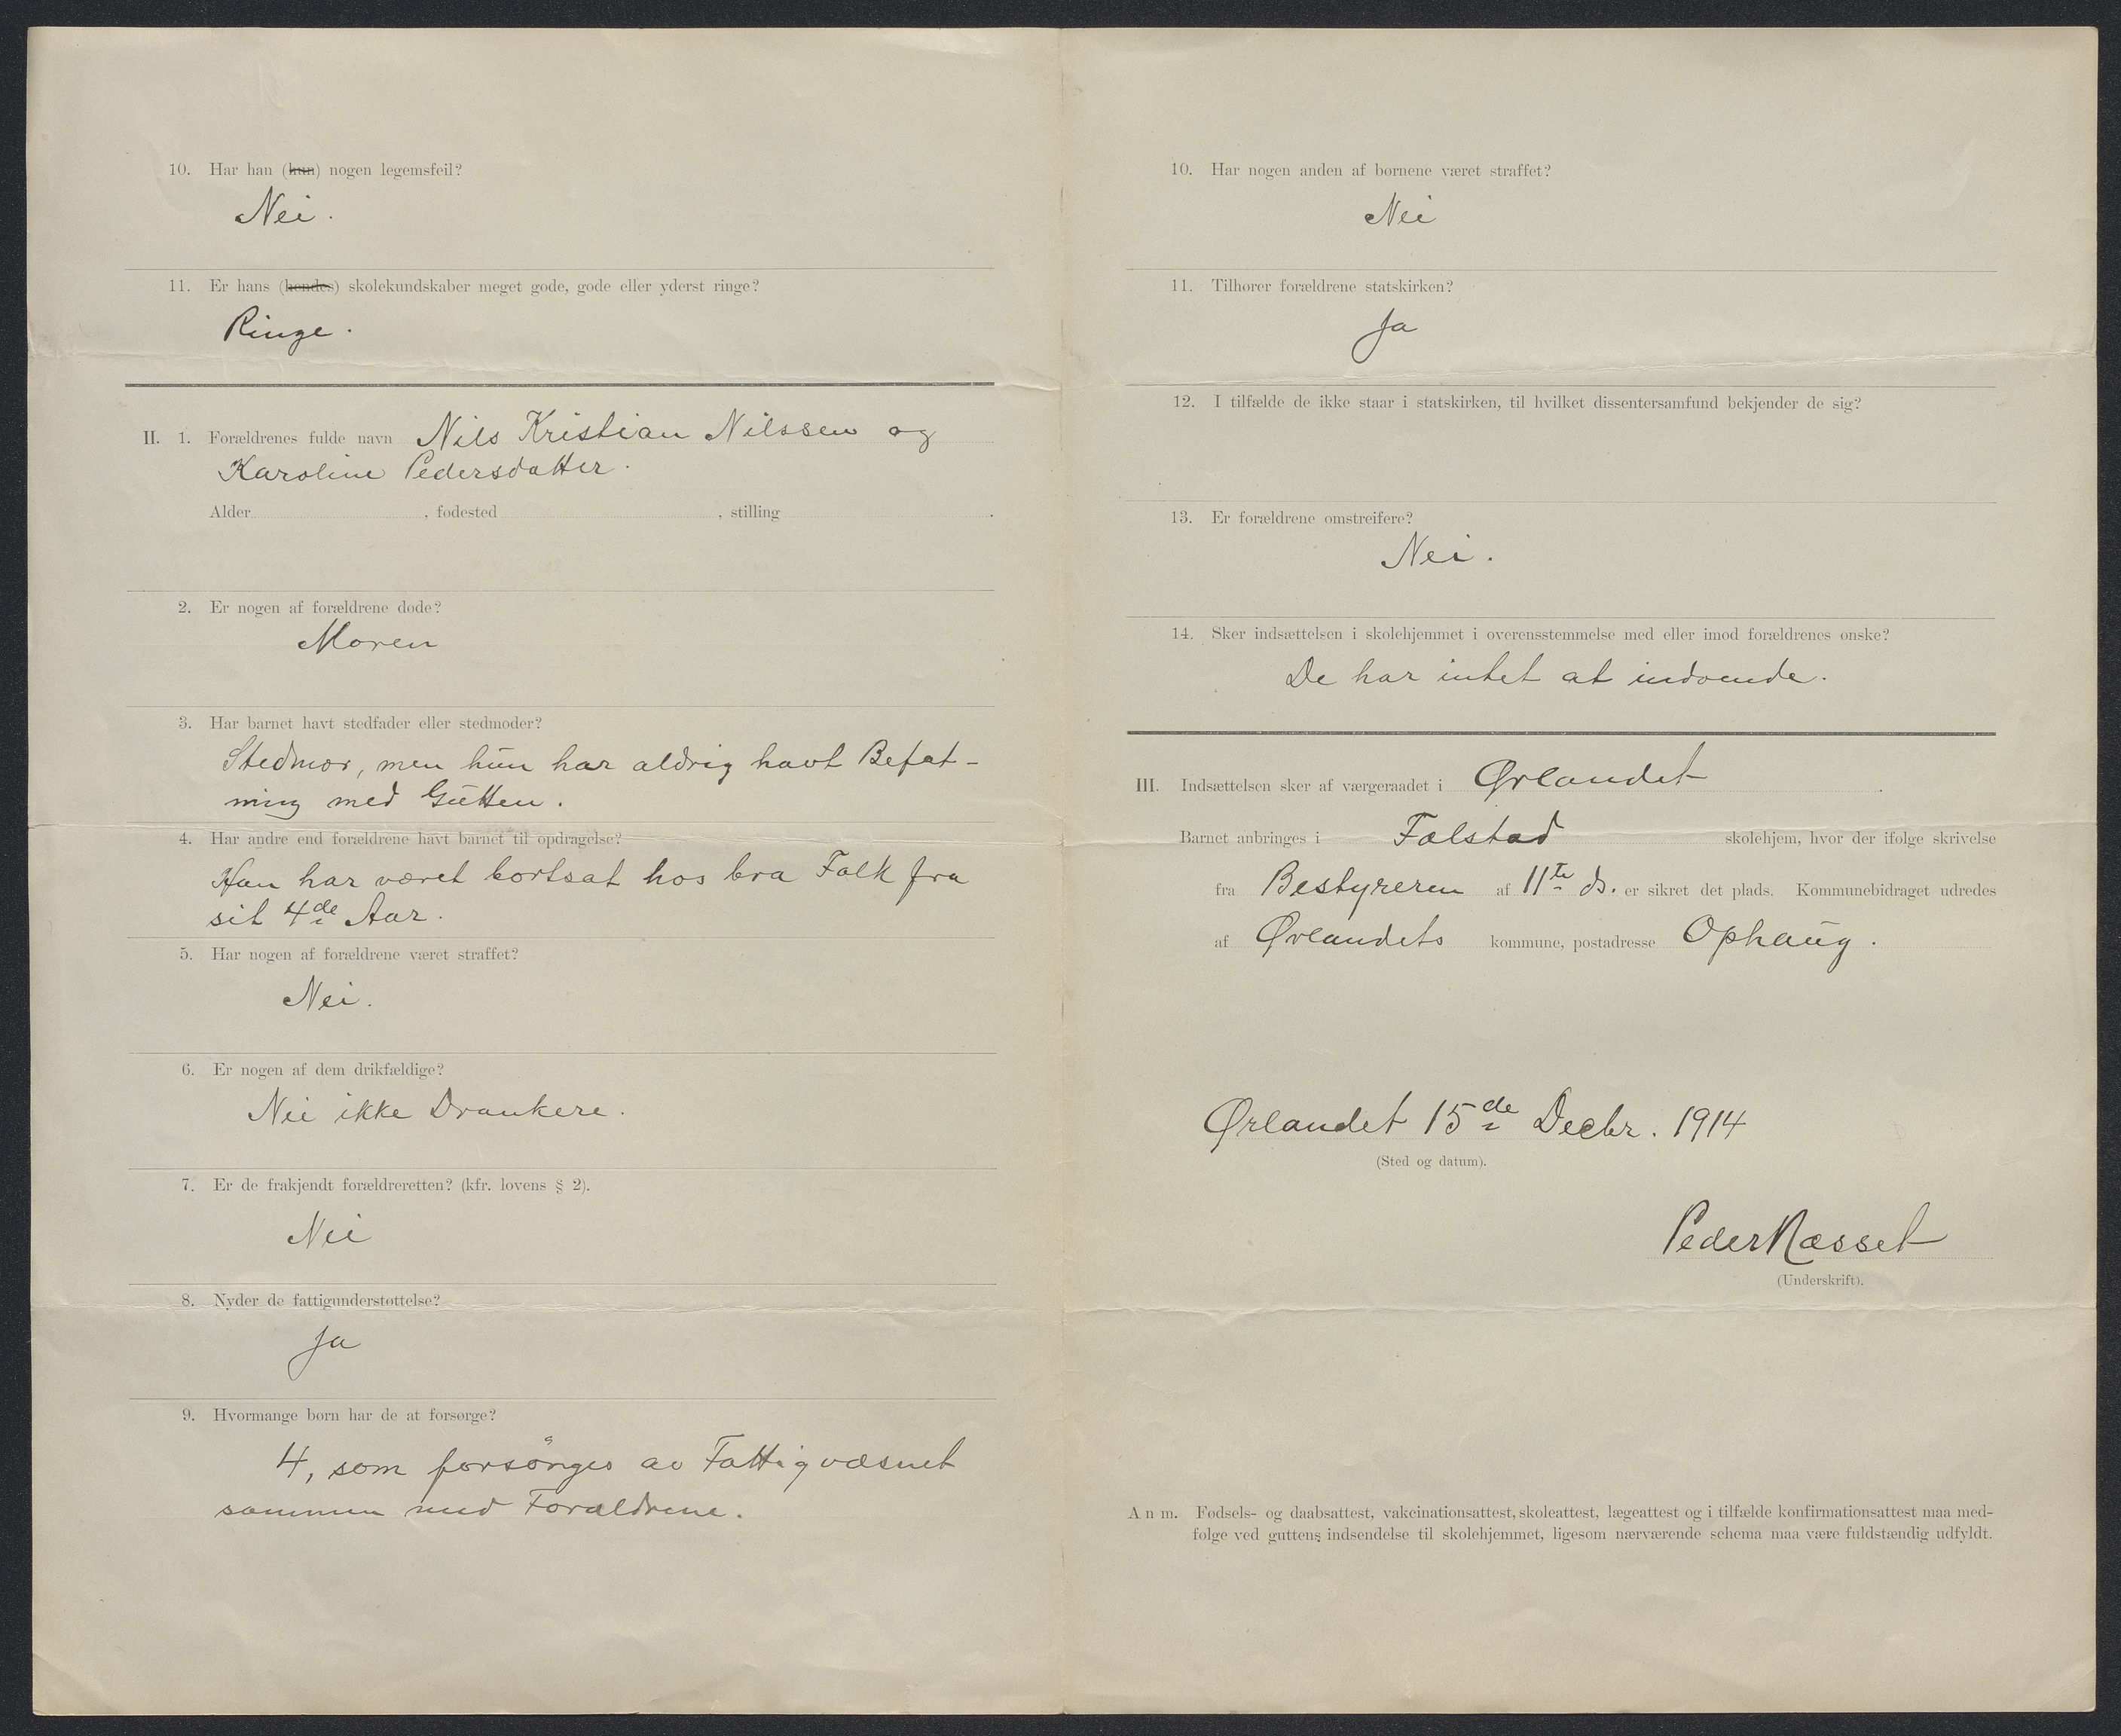 10. Har han (hun) nogen legemsfeil?
Nei.
11. Er hans (hendes) skolekundskaber meget gode, gode eller yderst ringe?
Ringe.
II. 1. Forældrenes fulde navn Nils Kristian Nilssen og
Karoline Pedersdatter.
Alder , fødested , stilling .
2. Er nogen af forældrene døde?
Moren
3. Har barnet havt stedfader eller stedmoder?
Stedmor, men hun har aldrig havt Befat-
ning med Gutten.
4. Har andre end forældrene havt barnet til opdragelse?
Han har været bortsat hos bra Folk fra
sit 4de Aar.
5. Har nogen af forældrene været straffet?
Nei.
6. Er nogen af dem drikfældige?
Nei ikke Drankere.
7. Er de frakjendt forældreretten? (kfr. lovens § 2).
Nei
8. Nyder de fattigunderstøttelse?
Ja
9. Hvormange børn har de at forsørge?
4, som forsørges av Fattigvæsnet
sammen med Forældrene.
10. Har nogen anden af børnene været straffet?
Nei
11. Tilhører forældrene statskirken?
Ja
12. I tilfælde de ikke staar i statskirken, til hvilket dissentersamfund bekjender de sig?
13. Er forældrene omstreifere?
Nei.
14. Sker indsættelsen i skolehjemmet i overensstemmelse med eller imod forældrenes ønske?
De har intet at indvende.
III. Indsættelsen sker af værgeraadet i Ørlandet .
Barnet anbringes i Falstad skolehjem, hvor der ifølge skrivelse
fra Bestyreren af 11te ds. er sikret det plads. Kommunebidraget udredes
af Ørlandets kommune, postadresse Ophaug.
Ørlandet 15de Decbr. 1914
(Sted og datum).
Peder Næsset
(Underskrift).
Anm. Fødsels- og daabsattest, vakcinationsattest, skoleattest, lægeattest og i tilfælde konfirmationsattest maa med-
følge ved guttens indsendelse til skolehjemmet, ligesom nærværende schema maa være fuldstændig udfyldt.